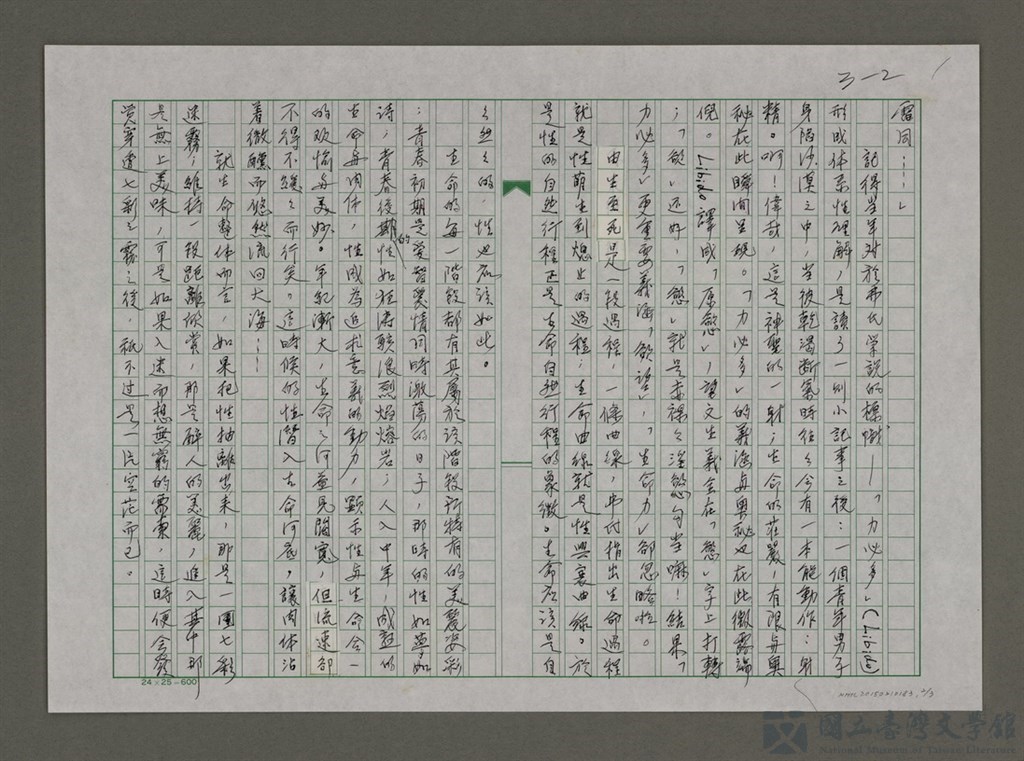 3-2
雷同……」
記得早年對於弗氏學說的標幟——「力必多」(Libido)
形成体系性理解，是讀了一則小記事之後：一個青年男子
身陷沙漠之中，當彼乾渴斷氣時往々会有一本能動作：射
精。啊！偉哉，這是神聖的一射；生命的莊嚴，有限与奧
秘在此瞬間呈現。「力必多」的義涵與奧秘也在此微露端
倪。Libido譯成「原慾」，望文生義会在「慾」字上打轉
；「欲」还好，「慾」就是赤裸々淫慾勾当嘛！結果「
力必多」更重要義涵「欲望」、「生命力」卻忽略啦。
由生至死是一段過程，一條曲線，弗氏指出生命過程
就是性萌生到熄止的過程，生命曲線就是性興衰曲線。於
是性的自然行程正是生命自然行程的象徵。生命应該是自
自然々的，性也应該如此。
生命的每一階段都有其屬於該階段所特有的美麗姿彩
：青春初期是愛智愛情同時激蕩的日子，那時的性如夢如
詩，青春後期的性如狂濤駭浪烈焰熔岩；人入中年，成熟的
生命與肉体，性成為追求意義的動力，顯示性與生命合一
的欣愉與美妙。年紀漸大，生命之河益見闊寬，但流速卻
不得不緩々而行矣。這時候的性潛入生命河底，讓肉体沾
着微醺而悠然流回大海……
就生命整体而言，如果把性抽離出來，那是一團七彩
迷霧，維持一段距離欣賞，那是醉人的美麗，進入其中那
是無上美味，可是如果入迷而想無窮的需索，這時便会發
覺穿透七彩之霧之後，祇不过是一片空茫而已。
24×25=600
NMTL20150210183, 2/3
國立臺灣文學館
National Museum of Taiwan Literature